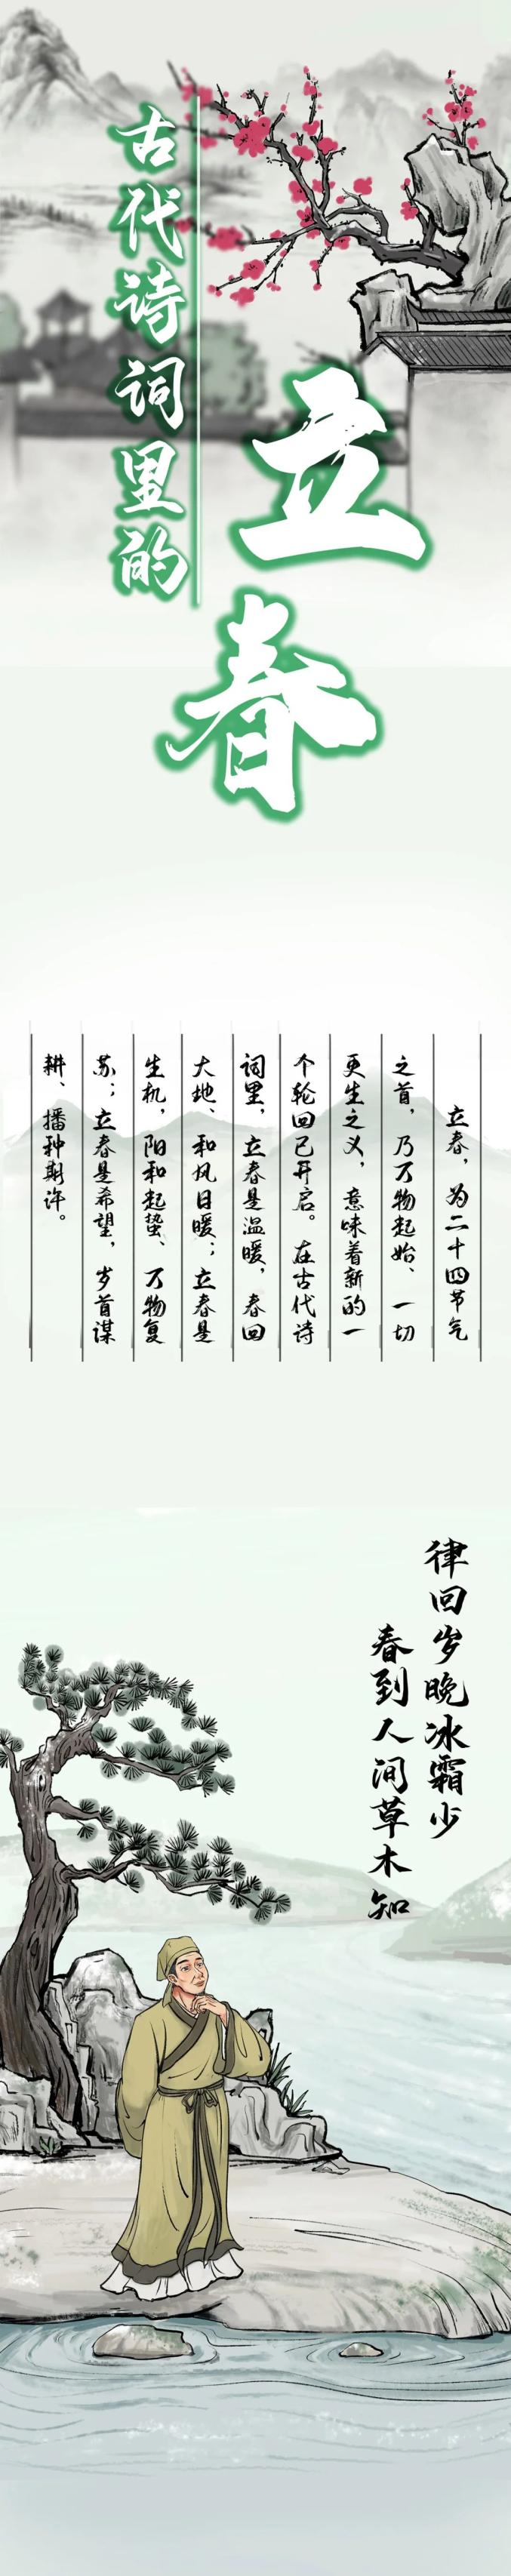 古代诗词里的
立春
立春，为二十四节气
之首，乃万物起始、一切
更生之义，意味着新的一
个轮回已开启。在古代诗
词里，立春是温暖，春回
大地、和风日暖；立春是
生机，阳和起蛰、万物复
苏；立春是希望，岁首谋
耕、播种期许。
律回岁晚冰霜少
春到人间草木知